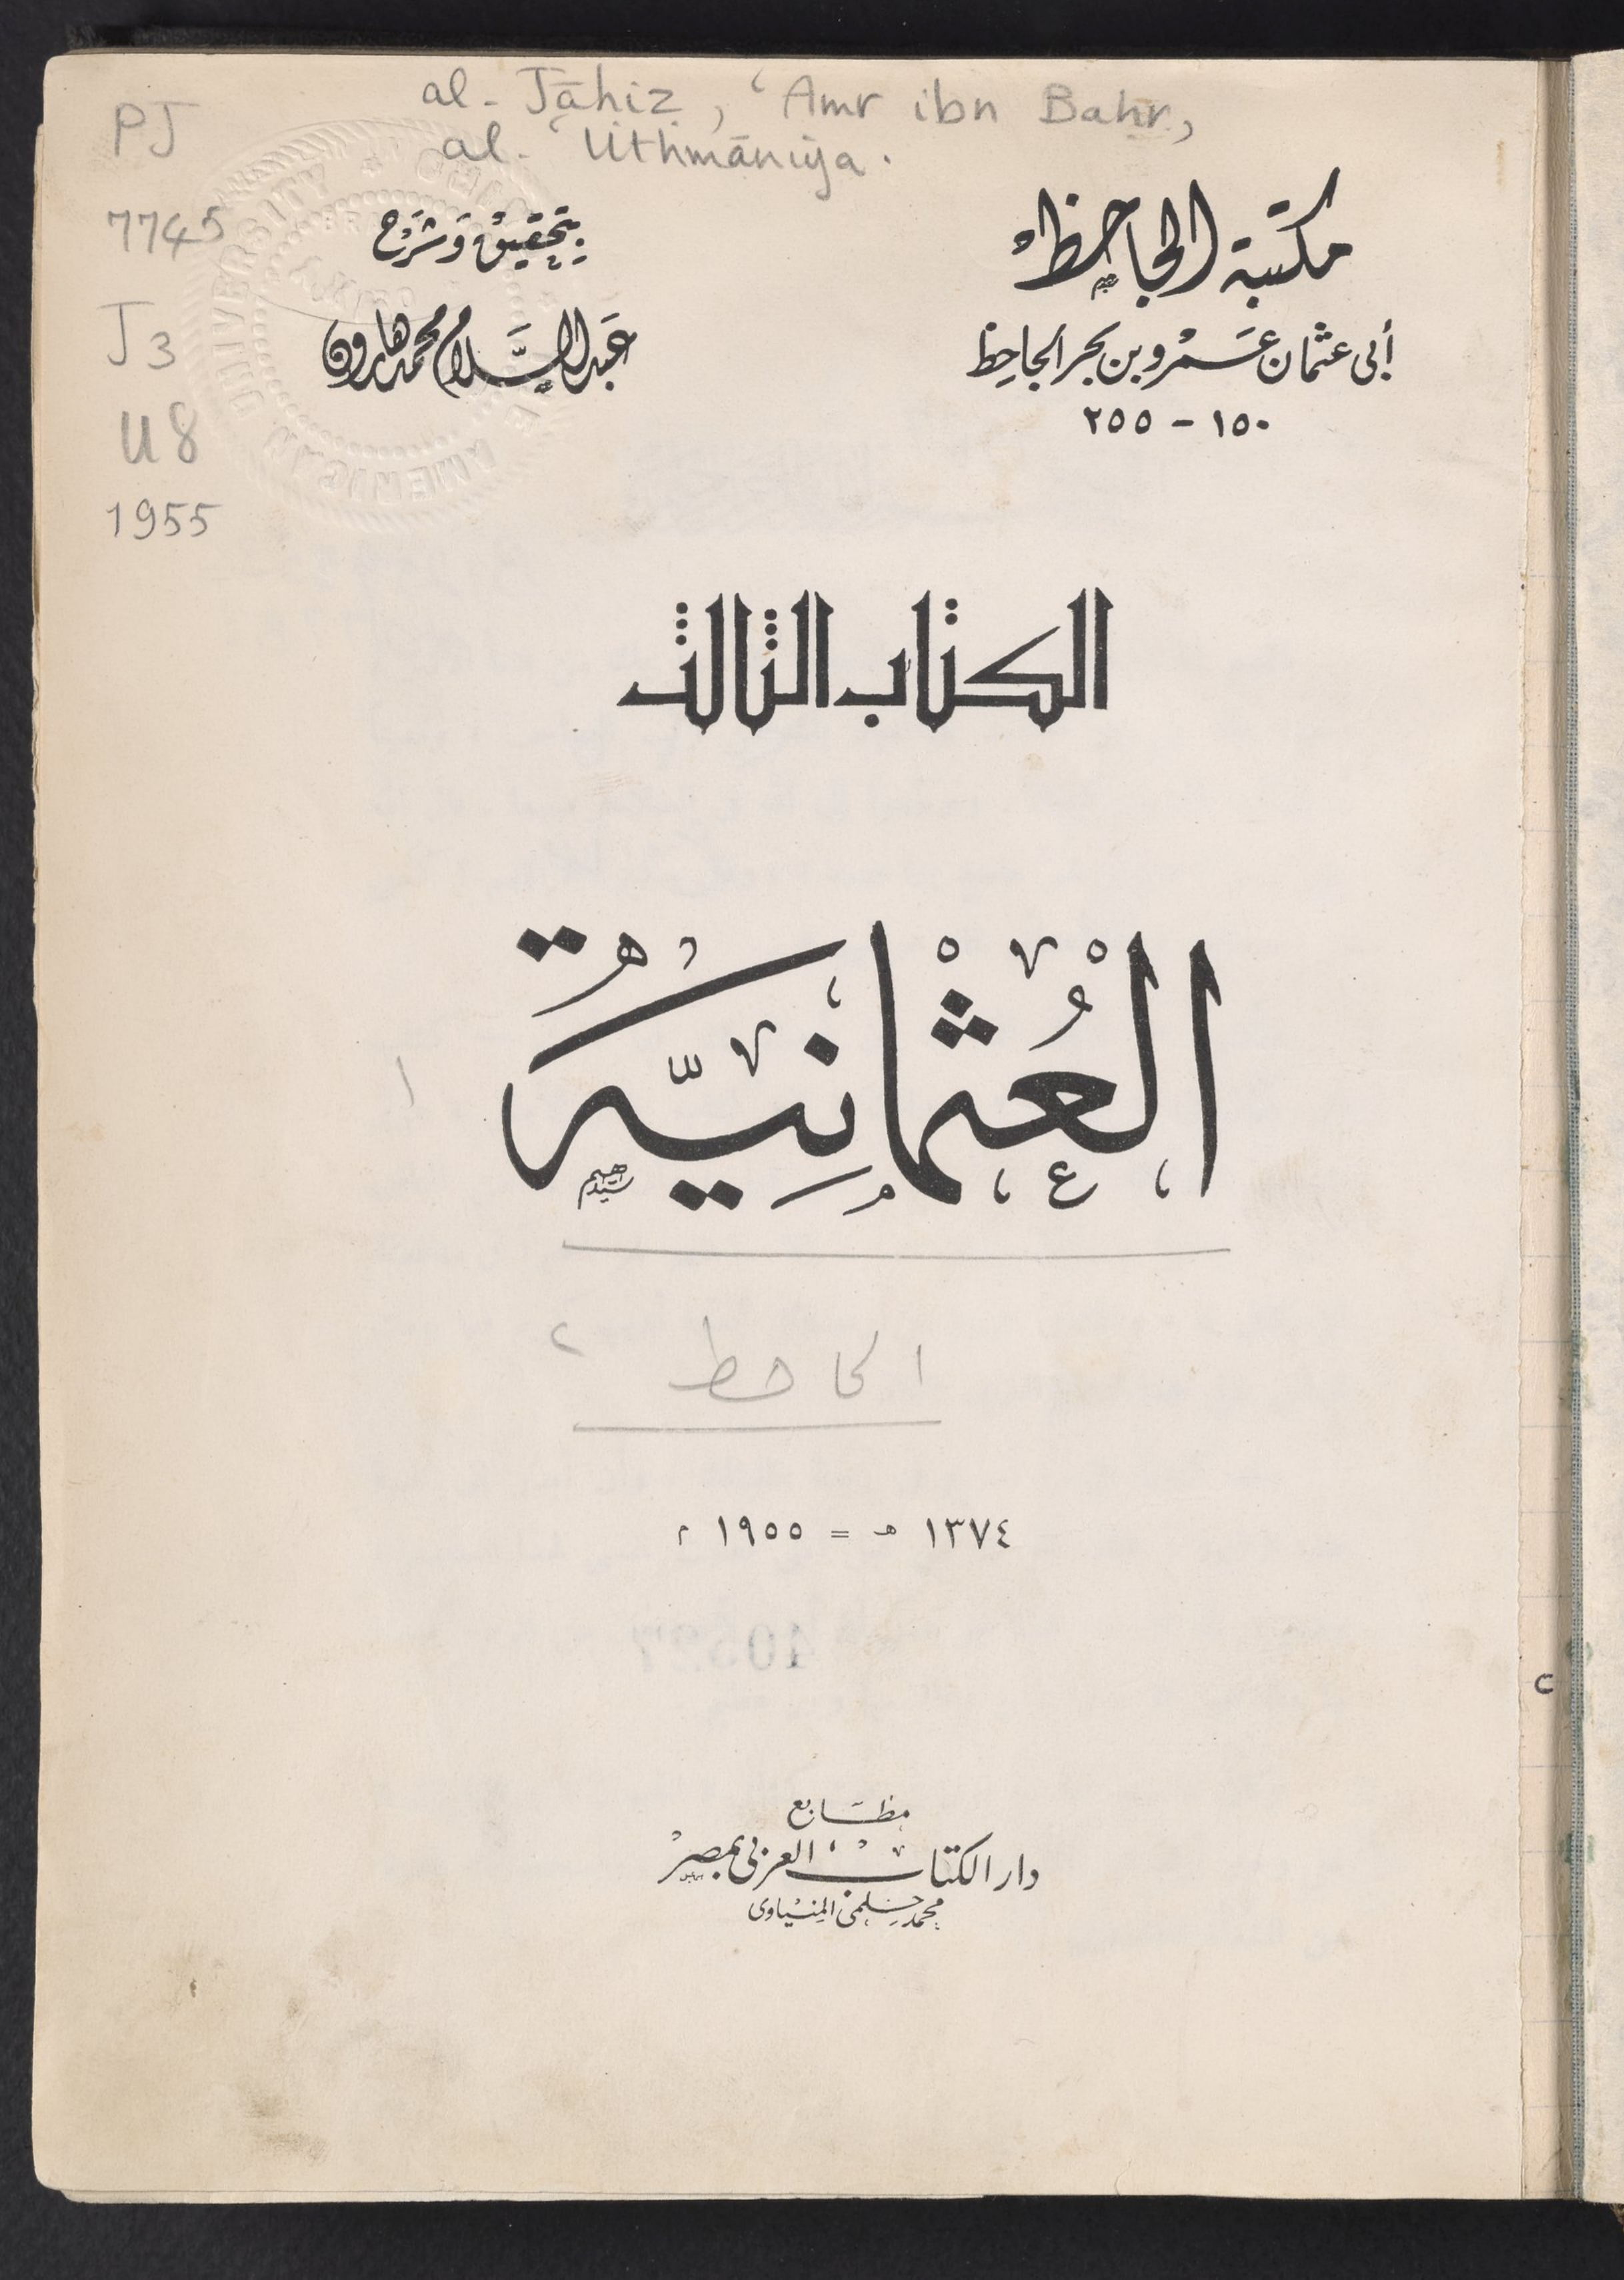 al-Jāḥiẓ, ʿAmr ibn Baḥr,
al-ʿUthmānīya.
PJ
7745
J3
U8
1955
مكتبة الجاحظ
أبى عثمان عَمْرو بن بحر الجاحِظ
١٥٠ - ٢٥٥
بتحقيق وَشَرْح
عَبد السَّلام محمد هارون
الكتاب الثالث
العُثْمانِيَّة
١
الجاحظ ٢
١٣٧٤ هـ = ١٩٥٥ م
مطابع
دار الكتاب العربى بمصر
محمد حلمى المنياوى